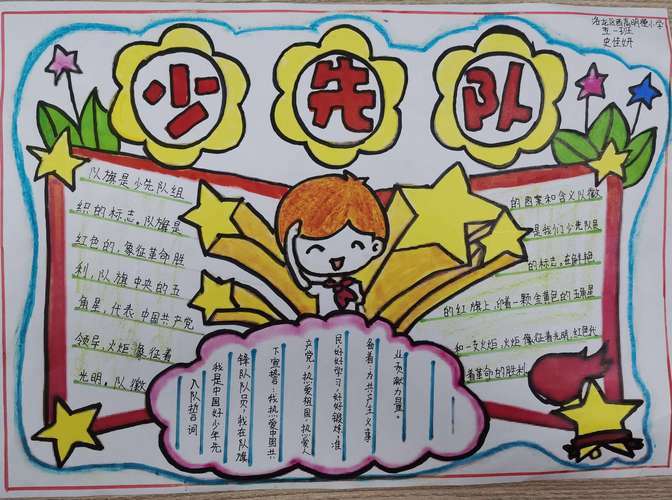 洛龙区西高明德小学
五一班
史佳妍
少先队
队旗是少先队组
织的标志。队旗是
红色的,象征革命胜
利,队旗中央的五
角星,代表中国共产党
领导,火炬象征着
光明。队徽
的图案和含义队徽
是我们少先队员
的标志,在鲜艳
的红旗上,绣着一颗金黄色的五角星
和一支火炬,火炬像征着光明,红色代
着革命的胜利
入队誓词
我是中国好少年先
锋队队员,我在队旗
下宣誓:我热爱中国共
产党,热爱祖国,热爱人
民,好好学习,好好锻炼,准
备着:为共产主义事
业贡献力量。